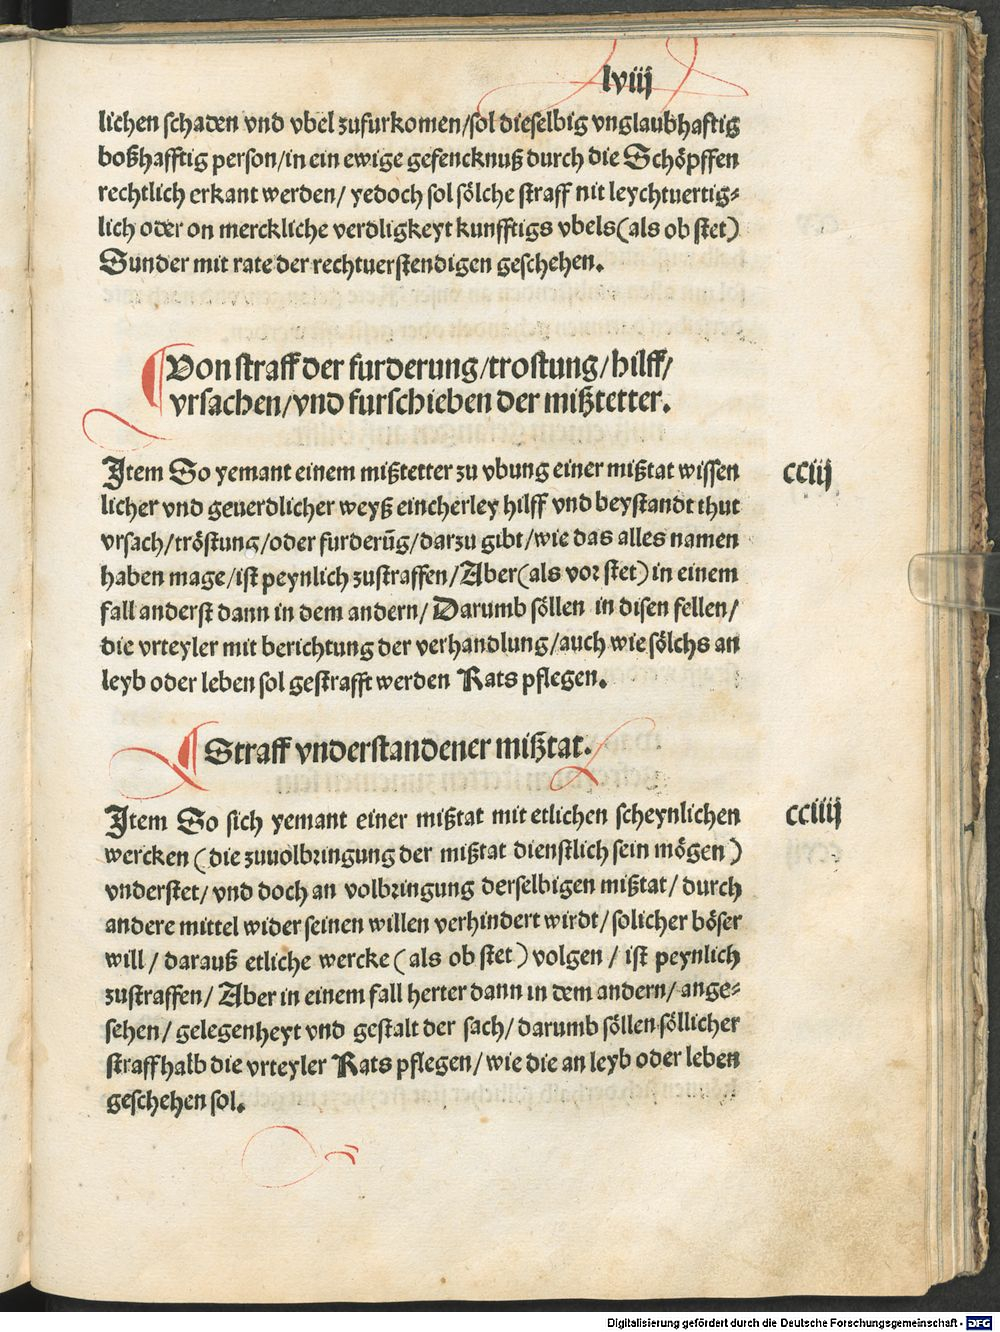 lviij
lichen schaden vnd vbel zufurkomen/sol dieselbig vnglaubhafftig
boßhafftig person/in ein ewige gefencknuß durch die Schöpffen
rechtlich erkant werden/ yedoch sol sölche straff nit leychtuertig⸗
lich oder on merckliche verdligkeyt kunfftigs vbels(als ob stet)
Sunder mit rate der rechtuerstendigen geschehen.
Von straff der furderung/trostung/hilff/
vrsachen/vnd furschieben der mißtetter.
Item So yemant einem mißtetter zu vbung einer mißtat wissen
cciij
licher vnd geuerdlicher weyß eincherley hilff vnd beystandt thut
vrsach/tröstung/oder furderūg/darzu gibt/wie das alles namen
haben mage/ist peynlich zustraffen/Aber(als vor stet)in einem
fall anderst dann in dem andern/ Darumb söllen in disen fellen/
die vrteyler mit berichtung der verhandlung/auch wie sölchs an
leyb oder leben sol gestrafft werden Rats pflegen.
Straff vnderstandener mißtat.
Item So sich yemant einer mißtat mit etlichen scheynlichen
cciiij
wercken (die zuuolbringung der mißtat dienstlich sein mögen)
vnderstet/ vnd doch an volbringung derselbigen mißtat/ durch
andere mittel wider seinen willen verhindert wirdt/ solicher böser
will/ darauß etliche wercke (als ob stet) volgen/ ist peynlich
zustraffen/ Aber in einem fall herter dann in dem andern/ ange⸗
sehen/ gelegenheyt vnd gestalt der sach/ darumb söllen söllicher
straff halb die vrteyler Rats pflegen/ wie die an leyb oder leben
geschehen sol.
Digitalisierung gefördert durch die Deutsche Forschungsgemeinschaft - DFG